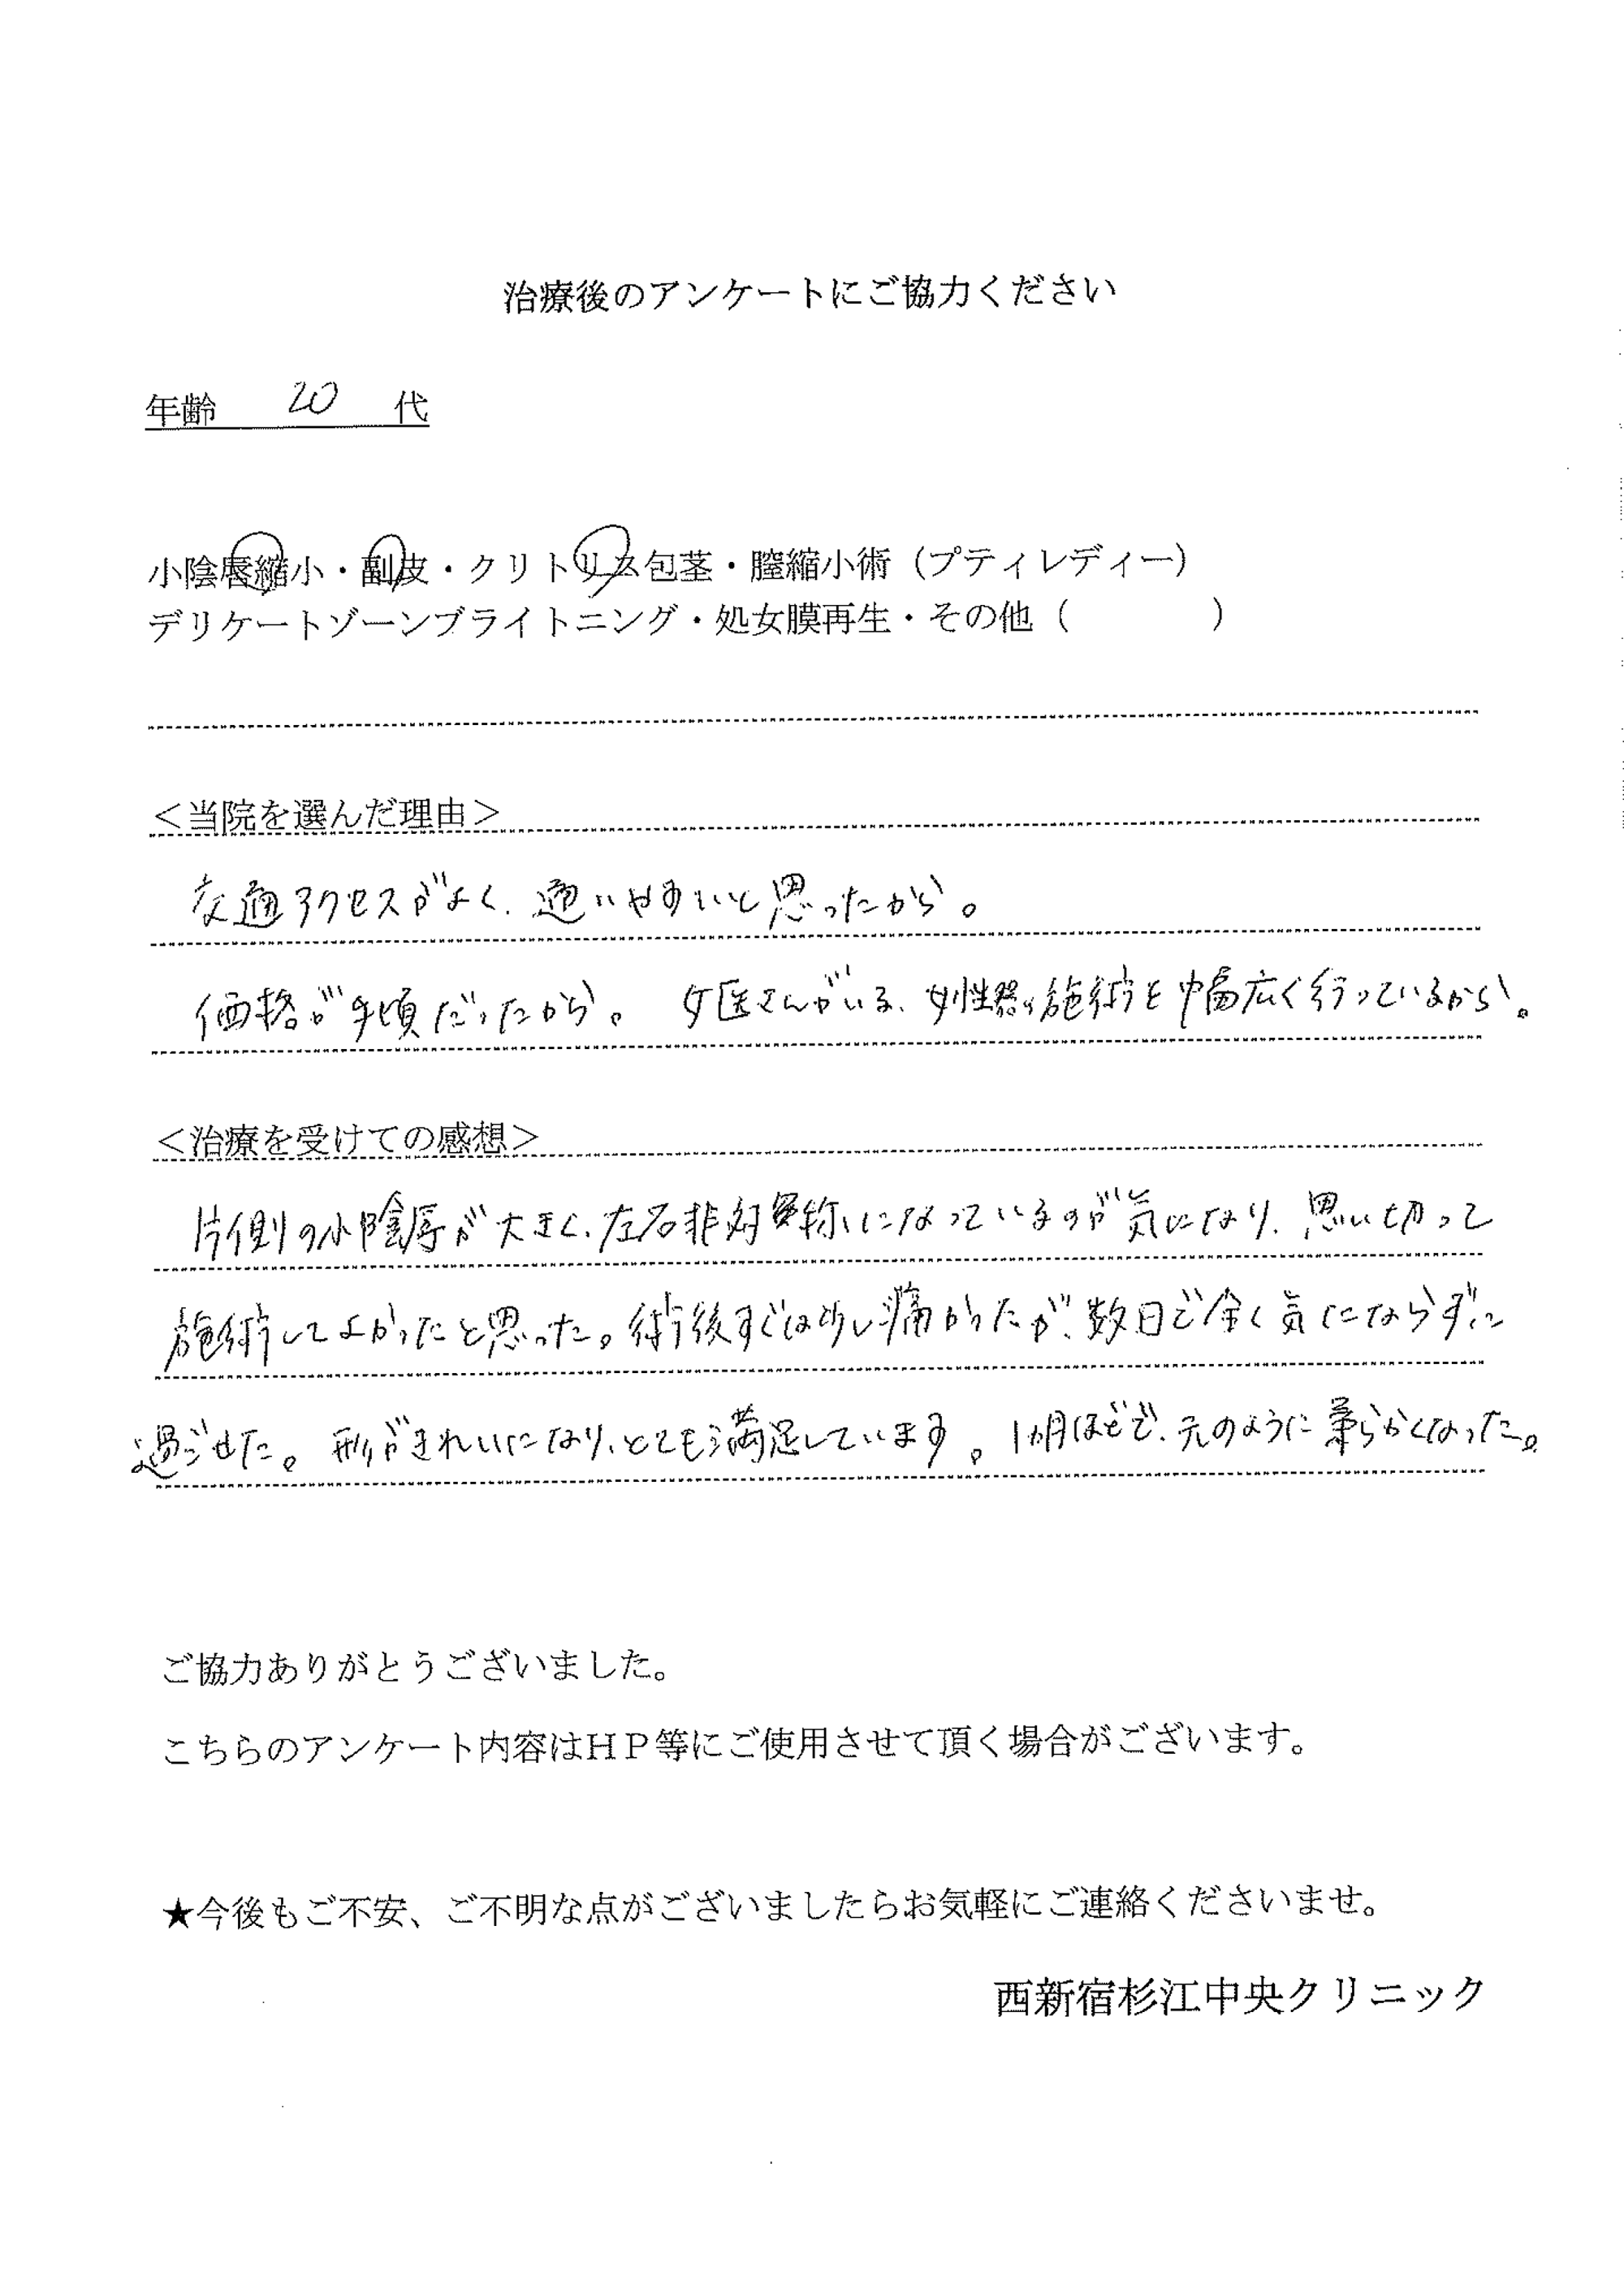 治療後のアンケートにご協力ください
年齢 20 代
小陰唇縮小・副皮・クリトリス包茎・膣縮小術（プティレディー）
デリケートゾーンブライトニング・処女膜再生・その他（　　　　）
＜当院を選んだ理由＞
交通アクセスがよく、通いやすいと思ったから。
価格が手頃だったから。 女医さんがいる、女性器の施術を幅広く行っているから。
＜治療を受けての感想＞
片側の小陰唇が大きく、左右非対称になっているのが気になり、思い切って
施術してよかったと思った。術後すぐは少し痛かったが、数日で全く気にならずに
過ごせた。形がきれいになり、とても満足しています。1ヵ月ほどで、元のように柔らかくなった。
ご協力ありがとうございました。
こちらのアンケート内容はＨＰ等にご使用させて頂く場合がございます。
★今後もご不安、ご不明な点がございましたらお気軽にご連絡くださいませ。
西新宿杉江中央クリニック